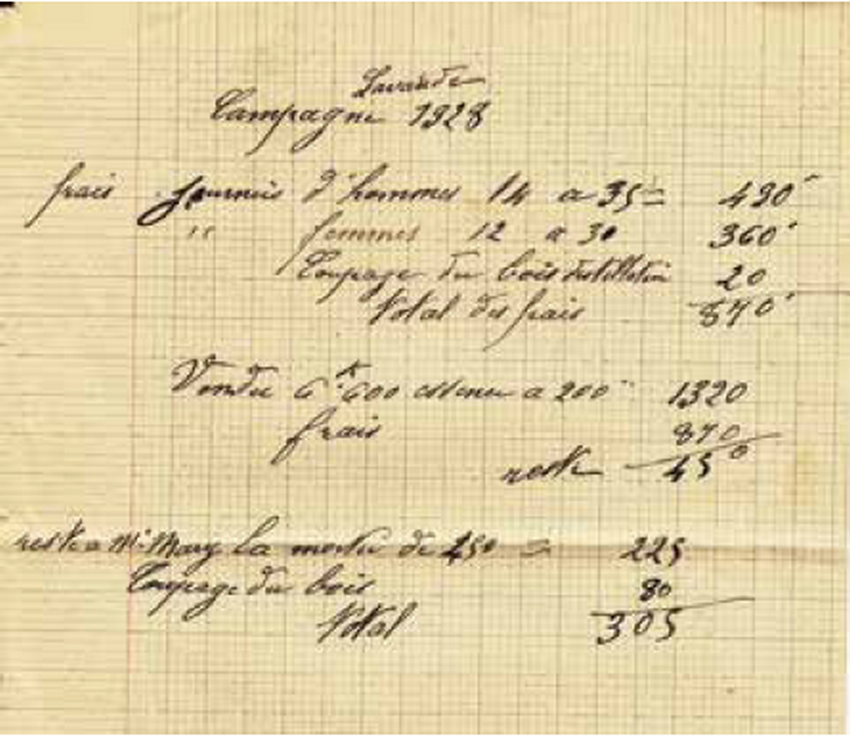 Lavande
Campagne 1928
frais Journeis d'hommes 14 a 35 = 490
" femmes 12 a 30 360
Coupage du bois distillation 20
Total des frais 870
Vendu 6k600 essence a 200 1320
frais 870
reste 450
reste a Mr Mary la moitie de 450 = 225
Coupage du bois 80
Total 305